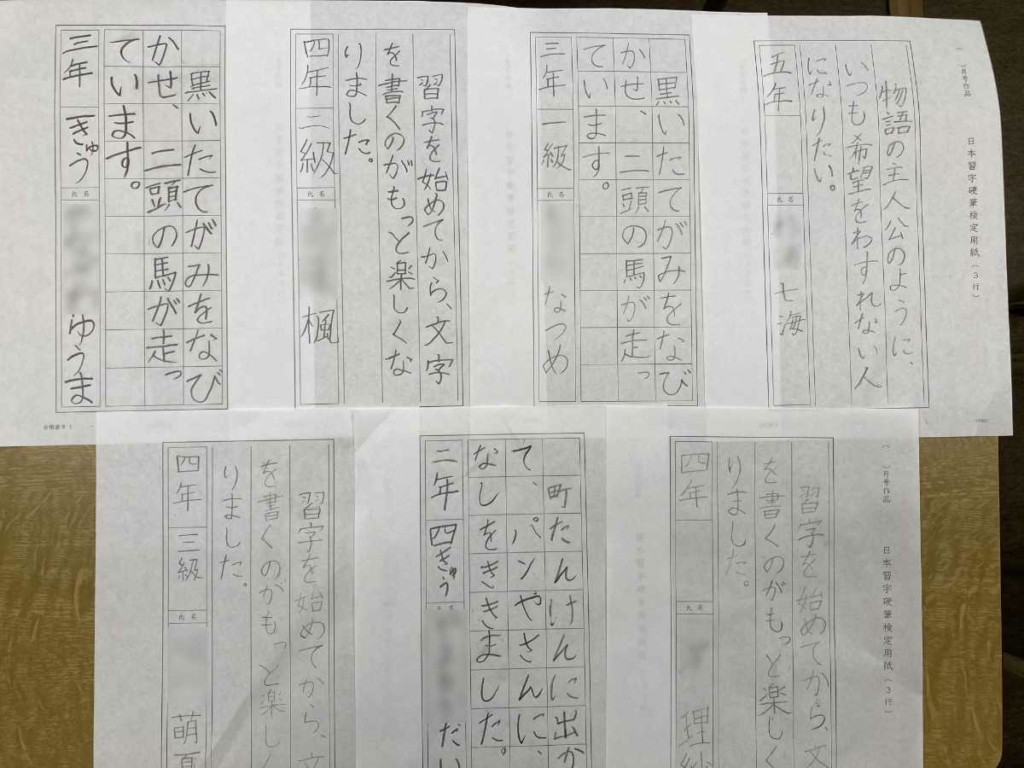 日本習字硬筆検定用紙(3行)
物語の主人公のように、
いつも希望をわすれない人
になりたい。
五年
氏名
七海
黒いたてがみをなび
かせ、二頭の馬が走っ
ています。
三年 一級
氏名
なつめ
習字を始めてから、文字
を書くのがもっと楽しくな
りました。
四年 二級
氏名
楓
黒いたてがみをなび
かせ、二頭の馬が走っ
ています。
三年 一きゅう
氏名
ゆうま
日本習字硬筆検定用紙(3行)
習字を始めてから、文
を書くのがもっと楽しく
りました。
四年
氏名
理紗
町たんけんに出か
て、パンやさんに、
なしをききました。
二年 四きゅう
氏名
だい
習字を始めてから、文
を書くのがもっと楽し
りました。
四年 三級
氏名
萌夏